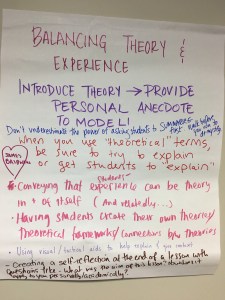 BALANCING THEORY &
EXPERIENCE
INTRODUCE THEORY → PROVIDE
PERSONAL ANECDOTE
TO MODEL!
Don't underestimate the power of asking students to SUMMARIZE
text
When you use "theoretical" terms,
be sure to try to explain
or get students to "explain"
JAMES
BALDWIN
students'
* Conveying that experience can be theory
in + of itself (And relatedly...)
• Having students create their own theories/
theoretical frameworks/connections b/w theories
• Using visual/textual aids to help explain
- Creating a self-reflection at the end of a lesson with
questions like - What was the aim of this lesson? How does it
apply to you personally/academically?